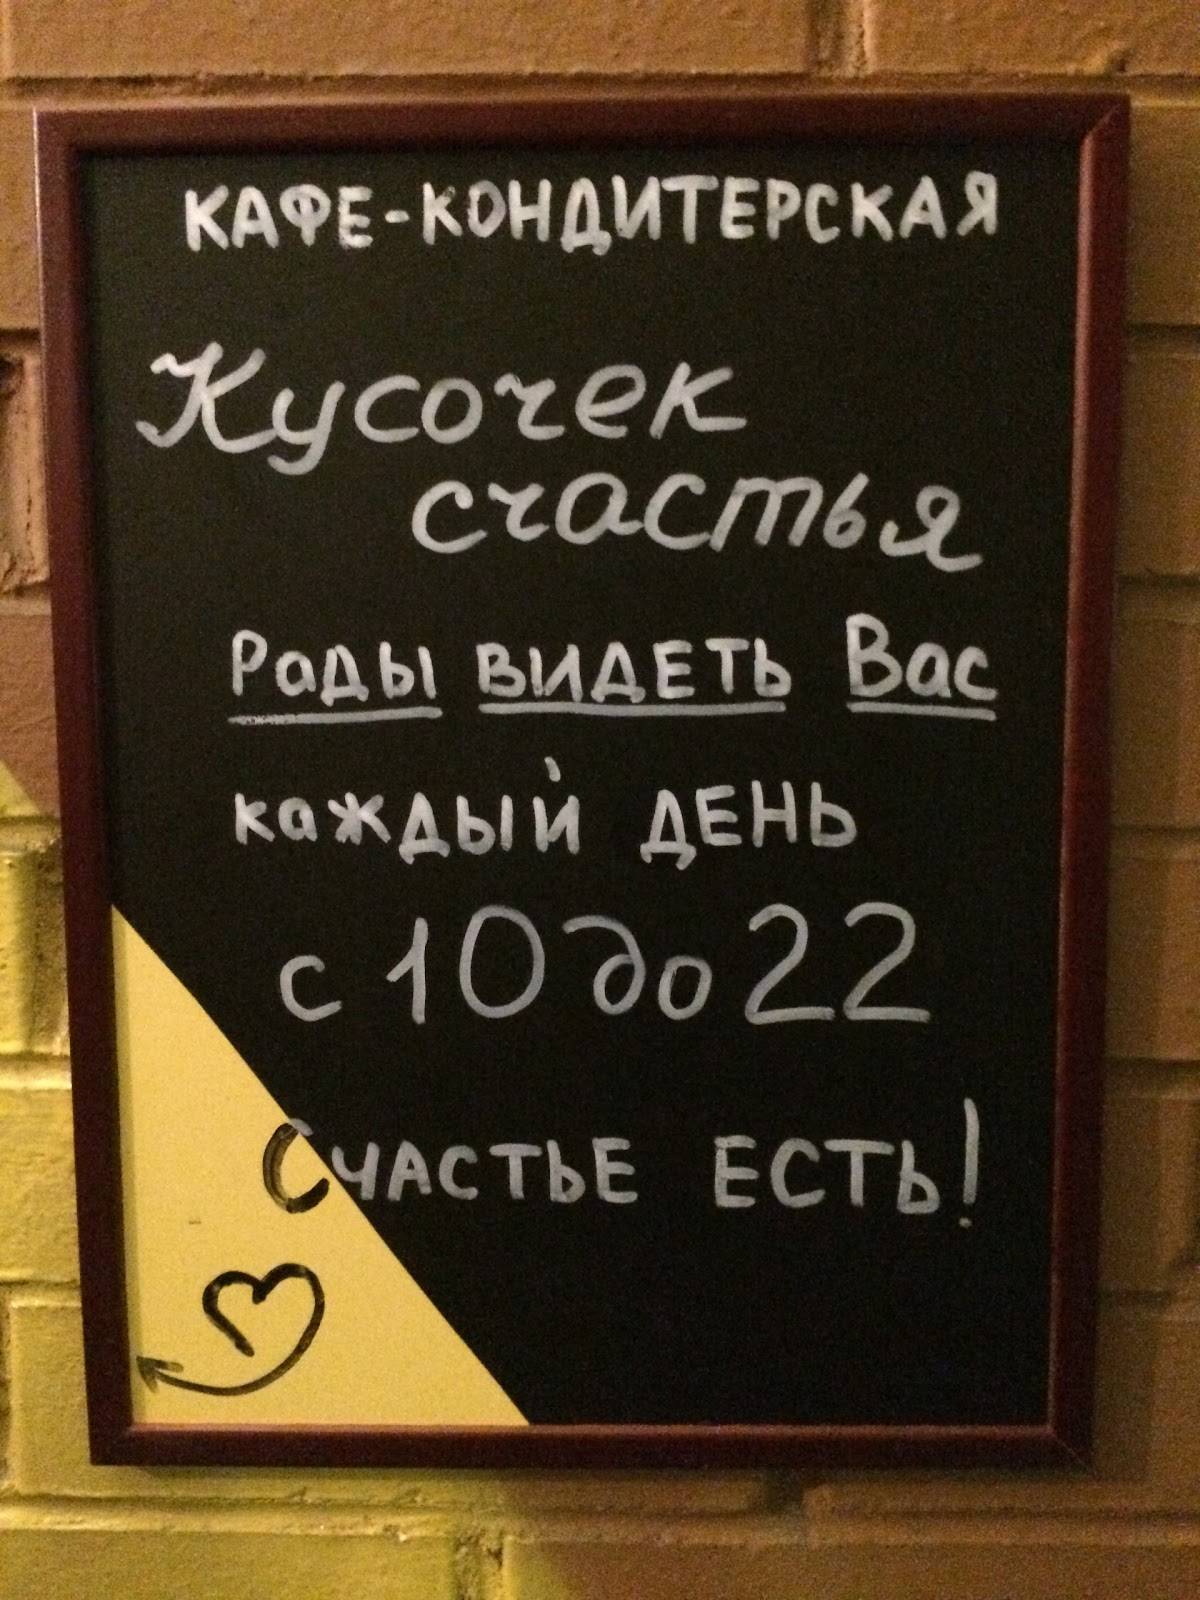 КАФЕ-КОНДИТЕРСКАЯ
Кусочек
счастья
Рады видеть Вас
каждый день
с 10 до 22
Счастье есть!